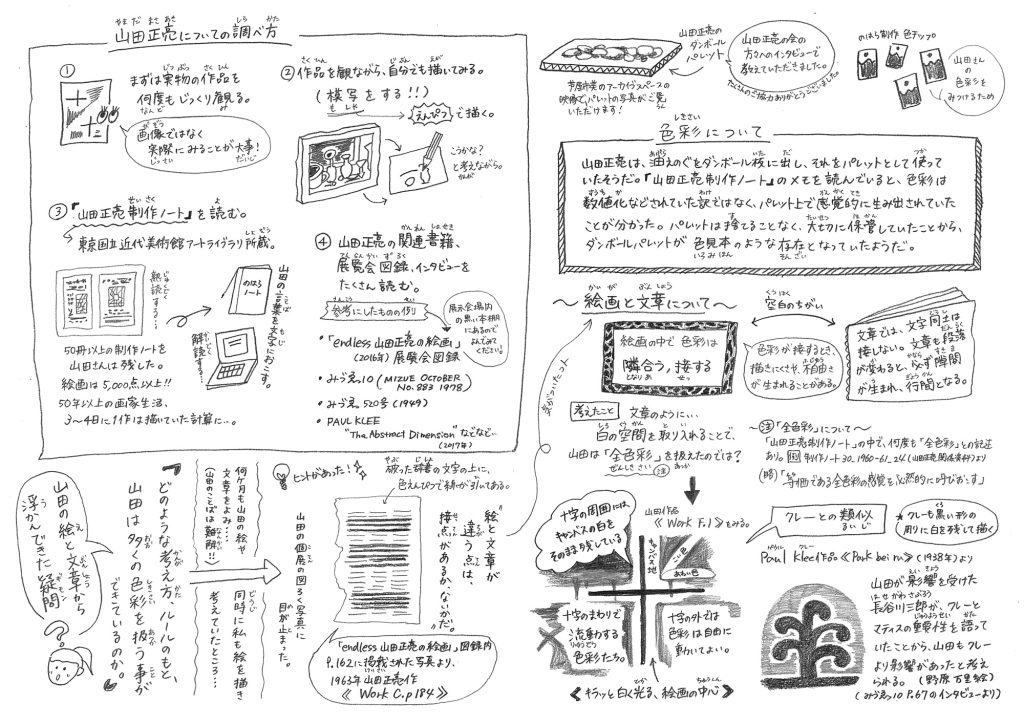 山田正亮についての調べ方
やまだ まさあき しら かた
①
まずは実物の作品を
何度もじっくり観る。
画像ではなく
実際にみることが大事!
②作品を観ながら、自分でも描いてみる。
(模写をする!!)
えんぴつで描く。
こうかな?
と考えながら。
③『山田正亮制作ノート』を読む。
東京国立近代美術館アートライブラリ所蔵。
熟読する…
のはら
ノート
解読する…
山田の言葉を文字におこす。
50冊以上の制作ノートを
山田さんは残した。
絵画は5,000点以上!!
50年以上の画家生活、
3〜4日に1作は描いていた計算に…。
④山田正亮の関連書籍、
展覧会図録、インタビューを
たくさん読む。
参考にしたものの例
展示会場内
の黒い本棚
にあるので
よんでみて
ください。
・「endless 山田正亮の絵画」
(2016年) 展覧会図録
・みづゑ10 (MIZUE OCTOBER
No.883 1978)
・みづゑ520号 (1949)
・PAUL KLEE
"The Abstract Dimension" などなど…
(2017年)
山田の絵と文章から
浮かんできた疑問
『どのような考え方、ルールのもと、
山田は多くの色彩を扱う事が
できているのか。』
何ヶ月も山田の絵や
文章をよみ…
(山田のことばは難解。)
同時に私も絵を描き
考えていたところ…
ヒントがあった!
破った辞書の文字の上に、
色えんぴつで線が引いてある。
山田の個展の図ろく写真に
目が止まった。
"絵と文章が
違う点は、
接点があるか、ないかだ。"
「endless 山田正亮の絵画」図録内
P.162に掲載された写真より、
1963年山田正亮作
《Work C.p184》
気がついたコト
山田正亮の
ダンボール
パレット
芦屋市美のアーカイヴスペースの
映像で、パレットの写真がご覧
いただけます!
山田正亮の会の
方々へのインタビューで
教えていただきました。
たくさんのご協力ありがとうございました。
のはら制作 色チップ
山田さん
の
色彩を
みつけるため
色彩について
山田正亮は、油えのぐをダンボール板に出し、それをパレットとして使って
いたそうだ。『山田正亮制作ノート』のメモを読んでいると、色彩は
数値化などされていた訳ではなく、パレット上で感覚的に生み出されていた
ことが分かった。パレットは捨てることなく、大切に保管していたことから、
ダンボールパレットが色見本のような存在となっていたようだ。
〜絵画と文章について〜
絵画の中で色彩は
隣合う,接する
空白のちがい
色彩が接するとき、
描きにくさや、不自由さ
が生まれることがある。
文章では、文字同士は
接しない。文章も段落
が変わると、必ず隙間
が生まれ、行間となる。
考えたこと 文章のように、、
白の空間を取り入れることで、
山田は「全色彩」を扱えたのでは?
注
〜注「全色彩」について〜
「山田正亮制作ノート」の中で、何度も「全色彩」との記述
あり。例 制作ノート30_1960-61_24 (山田正亮関係資料)より
「等価である全色彩の感覚を必然的に呼びおこす」
山田作品
《Work F.1》をみる。
十字の周囲には
キャンバスの白を
そのまま残している
キャンバス地
こい色
あわい色
十字のまわりで
流動する
色彩たち。
十字の外では
色彩は自由に
動いてよい。
《キラッと白く光る、絵画の中心》
クレーとの類似
★クレーも黒い形の
周りに白を残して描く
Paul Klee作品《Park bei Lu》(1938年)より
山田が影響を受けた
長谷川三郎が、クレーと
マティスの重要性を語って
いたことから、山田もクレー
より影響があったと考え
られる。(野原万里絵)
(みづゑ10 P.67のインタビューより)